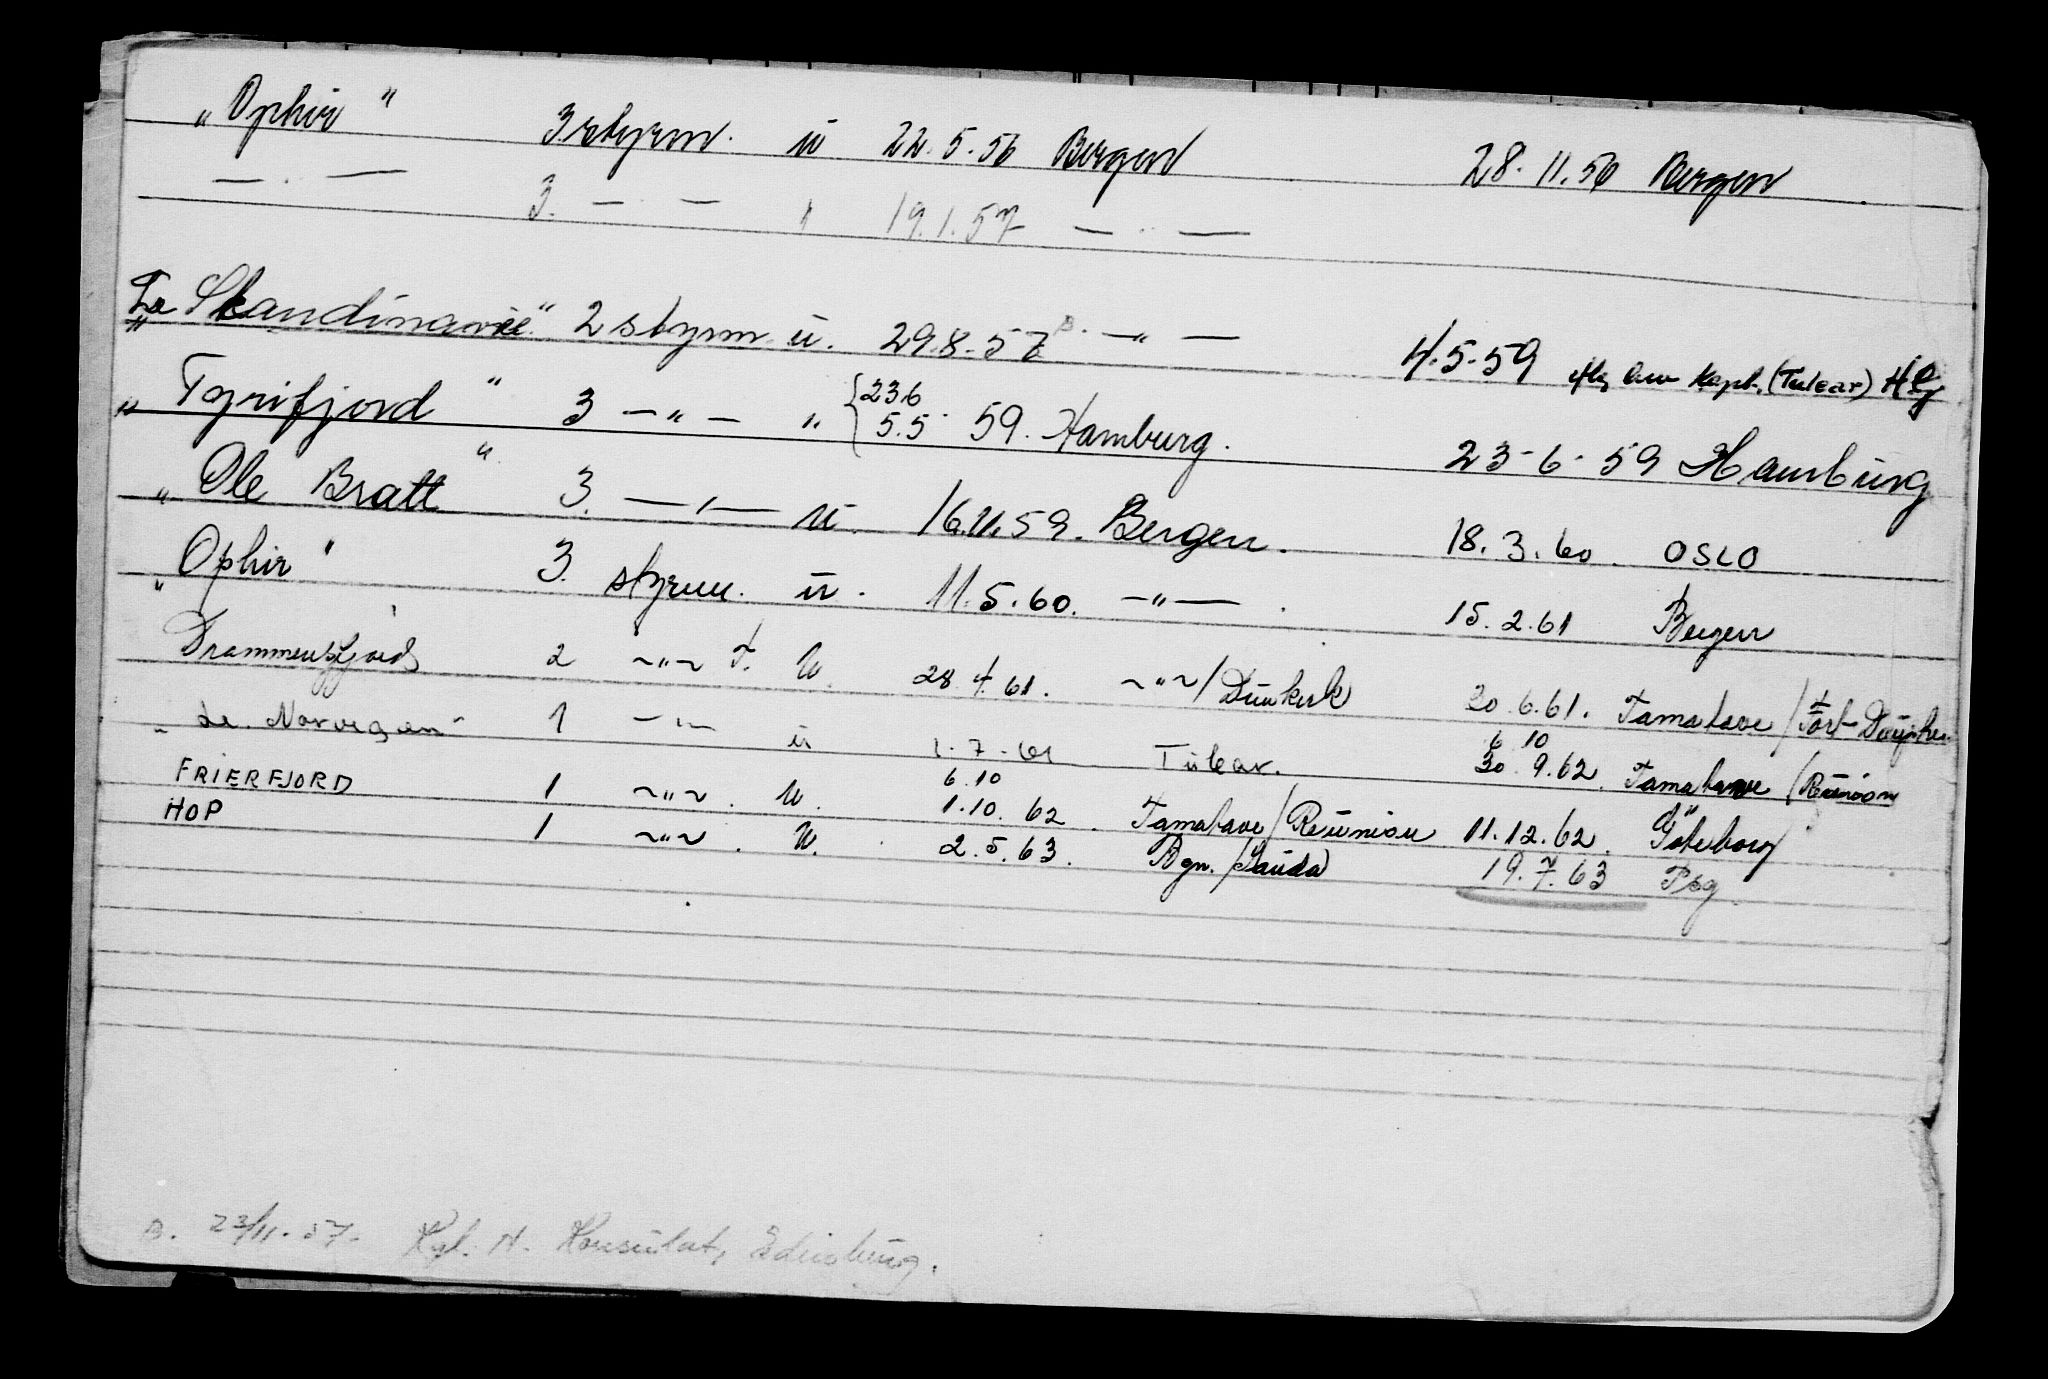 „Ophir" 3 styrm. u 22.5.56 Bergen 28.11.56 Bergen
— . — 3. — . — " 19.1.57 — " —
„La Skandinavie" 2 styrm. u. 29.8.57 — " — 4.5.59 Kapt. (Tulear) Hbg
„Tyrifjord" 3 — " — " {23.6 5.5 59. Hamburg. 23-6-59 Hamburg
„Ole Bratt" 3. — " — u. 16.11.59. Bergen. 18.3.60. OSLO
„Ophir" 3. styrm. u. 11.5.60. — " — . 15.2.61 Bergen
Drammensfjord 2 ~ " ~ F. U. 28.4.61. ~ " ~ / Dunkerk 30.6.61. Tamatave / Fort-Dauphin
„Le. Norvegien" 1 — " — u 1.7.61 Tulear. 6 10 30.9.62. Tamatave / (Reunion
FRIERFJORD 1 ~ " ~ . U. 6.10 1.10.62. Tamatave / Reunion 11.12.62. Göteborg
HOP 1 ~ " ~ . U. 2.5.63. Bgn. / Sauda 19.7.63 Psg.
B. 23/11.57. Kgl. N. Konsulat, Edinburg.